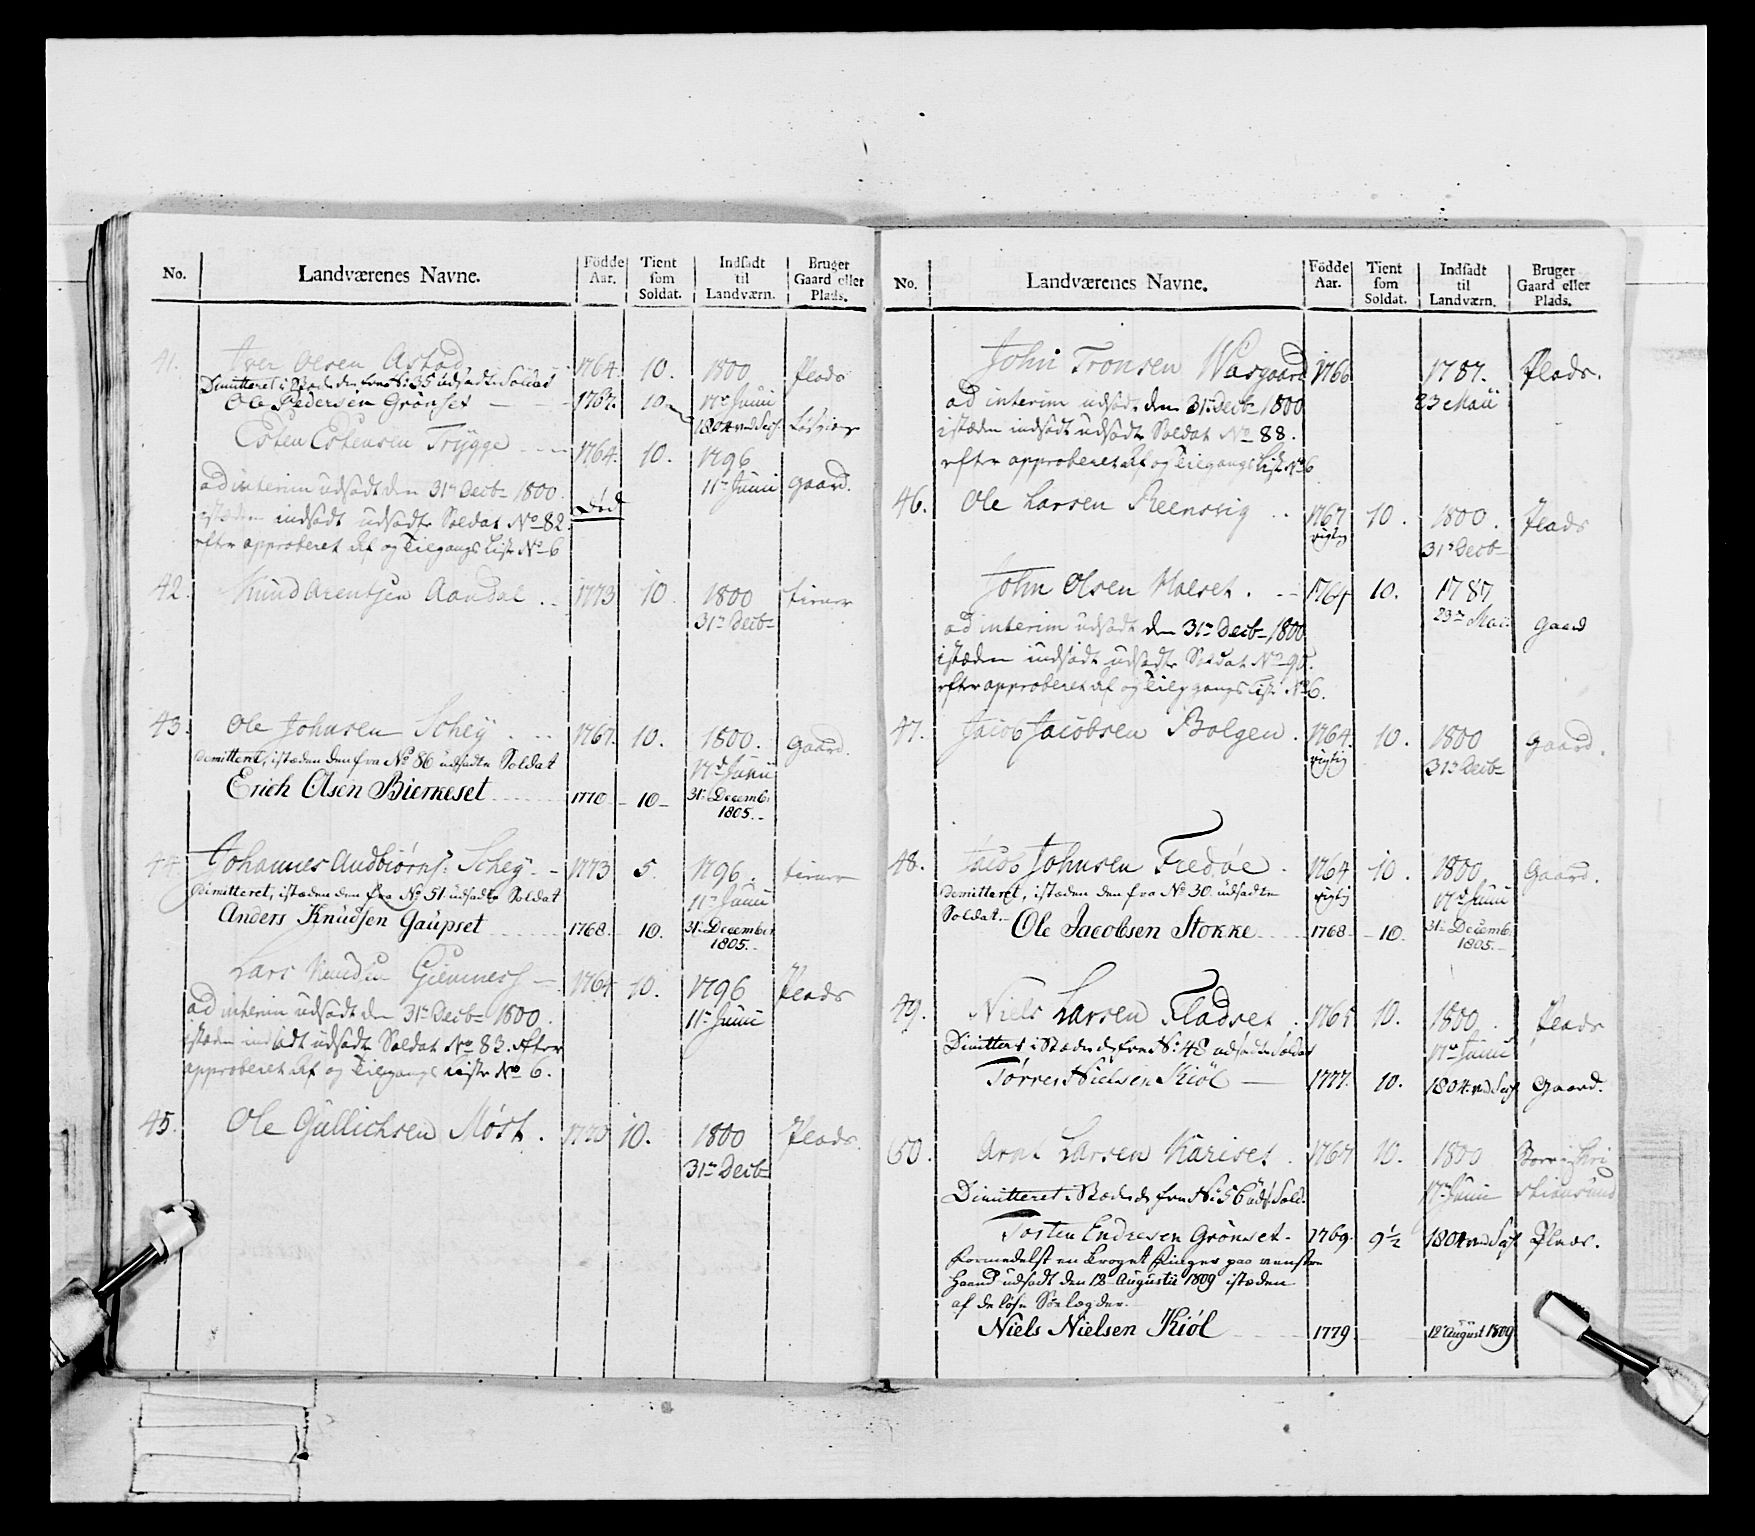 No. Landværenes Navne. Födde Aar. Tient som Soldat. Indsadt til Landværn. Bruger Gaard eller Plads.
41. Iver Olsen Astad 1764. 10. 1800 Plads
Dimitteret i Stæde den fra No 35 udsadte Soldat
Ole Pedersen Grönset 1767. 10 17de Junii
1804
Esten Estensen Trygge 1764. 10. 1796
11te Junii gaard.
ad interim udsadt den 31te Decbr 1800. Död
istæden indsadt udsadte Soldat No 82.
efter approberet Af og Tilgangs Liste No 6
42. Knud Arentsen Aandal 1773 10 1800 tiener
31te Decbr
43. Ole Johnsen Schey 1767. 10. 1800. gaard.
17de Junii
demitteret, istæden den fra No 86 udsadte Soldat
Erich Olsen Bierkeset 1770 10 31te Decembr
1805.
44. Johannes Andbiörns: Schey 1773 5. 1796. tiener
11te Junii
demitteret, istæden den fra No 51 udsadte Soldat
Anders Knudsen Gaupset 1768 10. 31te Decembr
1805.
Lars Knudsen Giemness 1764 10. 1796 Plads
11te Junii
ad interim udsadt den 31te Decbr 1800.
istæden indsadt udsadte Soldat No 83. efter
approberet Af og Tilgangs Liste No 6.
45. Ole Gullichsen Möst. 1770 10. 1800 Plads.
31te Decbr
No. Landværenes Navne. Födde Aar. Tient som Soldat. Indsadt til Landværn. Bruger Gaard eller Plads.
John Tronsen Waagaard 1766 1787. Plads.
23 Maii
ad interim udsadt den 31te Decbr 1800
istæden indsadt udsadte Soldat No 88.
efter approberet Af og Tilgangs Liste No 6
46. Ole Larsen Reensvig 1767 10. 1800. Plads
rigtig 31te Decbr
John Olsen Holset. 1764 10. 1787
23de Maii gaard
ad interim udsadt den 31te Decbr 1800
istæden indsadt udsadte Soldat No 90.
efter approberet Af og Tilgangs Liste No 6.
47. Jacob Jacobsen Bolgen. 1764. 10. 1800 gaard.
rigtig 31te Decbr
48. Jacob Johnsen Fredöe. 1764 10. 1800 Gaard.
rigtig 17de Junii
demitteret, istæden den fra No 30 udsadte
Soldat.
Ole Jacobsen Stokke 1768 10. 31te Decembr
1805.
49. Niels Larsen Fladset. 1765 10. 1800. Plads
17de Junii
Dimitteret i Stæde de fra No 48 udsadte Soldat
Törres Nielsen Kiöl 1777. 10. 1804 Gaard.
50. Arnt Larsen Kariset. 1767 10. 1800 Boer i Chri
17de Junii stiansund
Dimitteret i Stæde de fra No 56 uds: Sold:
Tosten Endresen Grönset. 1769. 9½ 1804 Plads.
formedelst en kroget Finger paa venstre
Haand udsadt den 12te Augustii 1809 istæden
af de löse Söelægder.
Niels Nielsen Kiöl 1779 12te August 1809